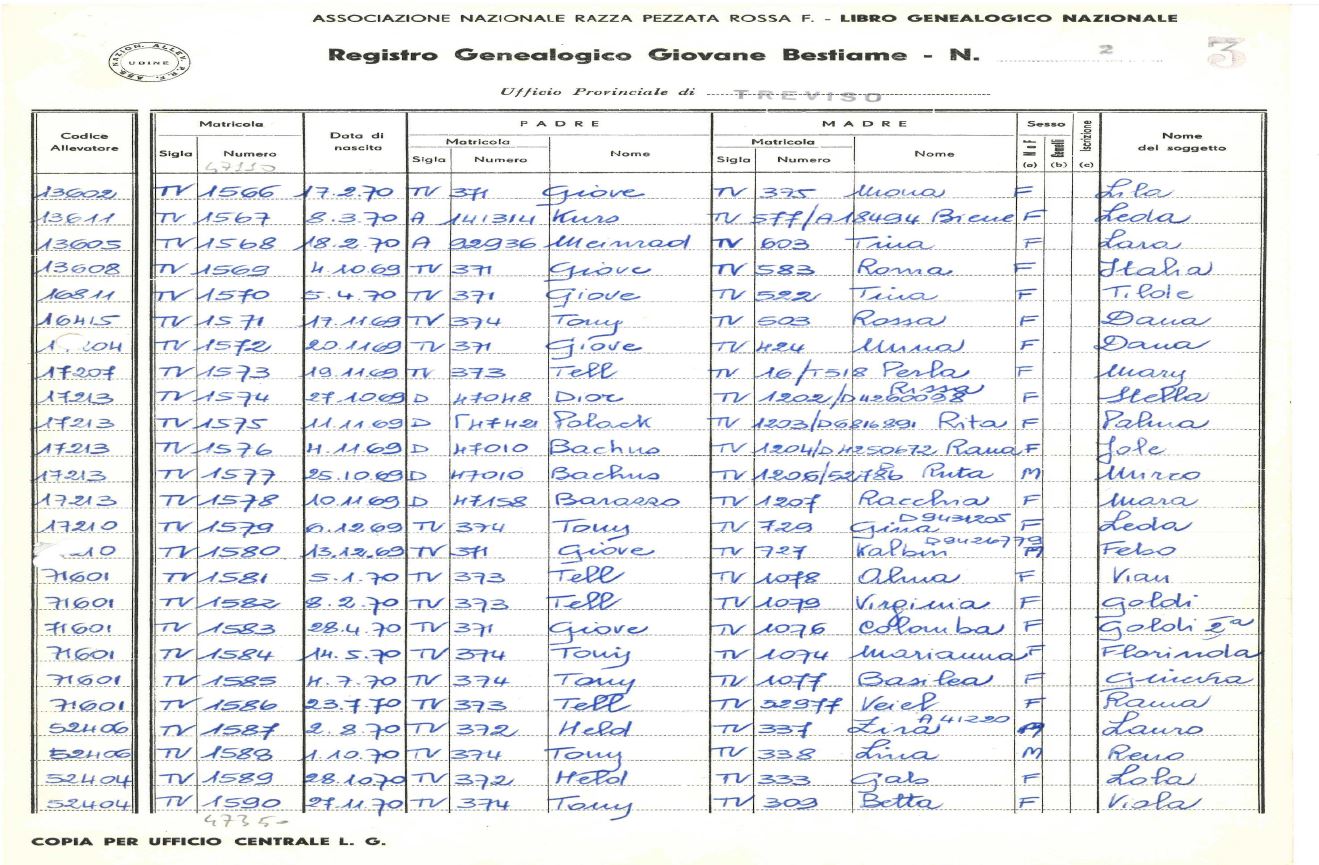 ASSOCIAZIONE NAZIONALE RAZZA PEZZATA ROSSA F. - LIBRO GENEALOGICO NAZIONALE
Registro Genealogico Giovane Bestiame - N. 2 3
UDINE
Ufficio Provinciale di TREVISO
Codice Allevatore Matricola Data di nascita PADRE MADRE Sesso Iscrizione Nome del soggetto
Matricola Matricola M o F Gemelli
Sigla Numero Sigla Numero Nome Sigla Numero Nome (a) (b) (c)
47110
13602 TV 1566 17.2.70 TV 371 Giove TV 375 Mona F Lila
13611 TV 1567 8.3.70 A 141314 Kuro TV 577/A18494 Biene F Leda
13605 TV 1568 18.2.70 A 92936 Meinrad TV 603 Tina F Lara
13608 TV 1569 4.10.69 TV 371 Giove TV 583 Roma F Italia
16811 TV 1570 5.4.70 TV 371 Giove TV 522 Tina F Tilde
16415 TV 1571 17.11.69 TV 374 Tony TV 503 Rossa F Dana
TV 1572 20.11.69 TV 371 Giove TV 424 Mina F Dana
17207 TV 1573 19.11.69 TV 373 Tell TV 16/T518 Perla F Mary
17213 TV 1574 27.10.69 D 47048 Dior TV 1202/D4260038 Rissa F Stella
17213 TV 1575 11.11.69 D 47421 Polack TV 1203/D6816891 Rita F Palma
17213 TV 1576 4.11.69 D 47010 Bachus TV 1204/D4250672 Rana F Jole
17213 TV 1577 25.10.69 D 47010 Bachus TV 1206/52786 Ruta M Mirco
17213 TV 1578 10.11.69 D 47158 Barasso TV 1207 Racchia F Mara
17210 TV 1579 6.12.69 TV 374 Tony TV 729 Gina D9431205 F Leda
10 TV 1580 13.12.69 TV 371 Giove TV 727 Kalbin D9426779 M Febo
71601 TV 1581 5.1.70 TV 373 Tell TV 1078 Alma F Vian
71601 TV 1582 8.2.70 TV 373 Tell TV 1079 Virginia F Goldi
71601 TV 1583 28.4.70 TV 371 Giove TV 1076 Colomba F Goldi 2ª
71601 TV 1584 14.5.70 TV 374 Tony TV 1074 Marianna F Florinda
71601 TV 1585 4.7.70 TV 374 Tony TV 1077 Basilea F Ginevra
71601 TV 1586 23.7.70 TV 373 Tell TV 22977 Veiel F Rama
52406 TV 1587 2.8.70 TV 372 Held TV 337 Lira A 41220 M Lauro
52406 TV 1588 1.10.70 TV 374 Tony TV 338 Lina M Reno
52404 TV 1589 28.10.70 TV 372 Held TV 333 Gab F Lola
52404 TV 1590 27.11.70 TV 374 Tony TV 309 Betta F Viola
COPIA PER UFFICIO CENTRALE L. G.